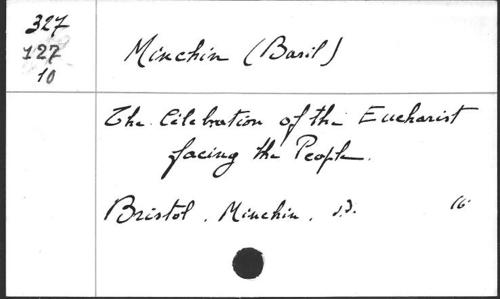 327
127
10
Minchin (Basil)
The Celebration of the Eucharist
facing the People.
Bristol. Minchin. s.d. 16